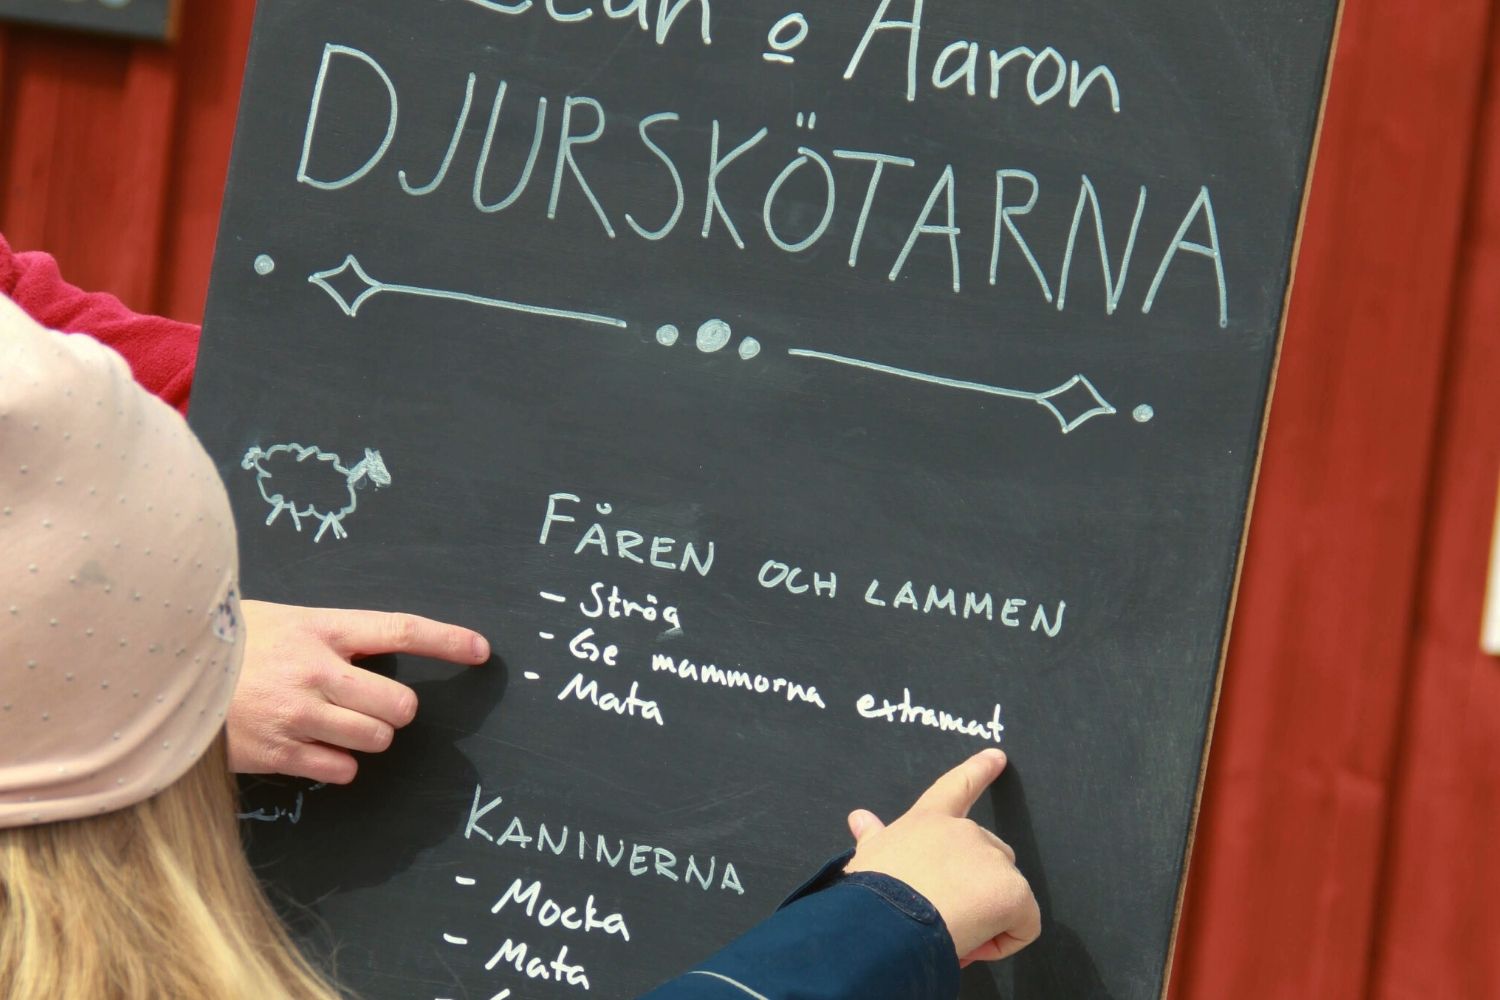 o Aaron
DJURSKÖTARNA
FÅREN OCH LAMMEN
- Strög
- Ge mammorna extramat
- Mata
KANINERNA
- Mocka
- Mata